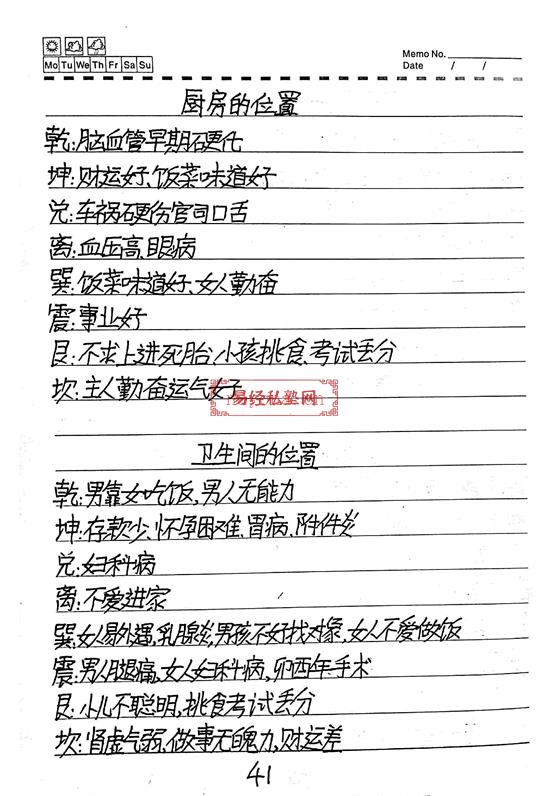 Memo No.
Mo Tu We Th Fr Sa Su
Date / /
厨房的位置
乾:脑血管早期硬化
坤:财运好、饭菜味道好
兑:车祸硬伤官司口舌
离:血压高、眼病
巽:饭菜味道好、女人勤奋
震:事业好
艮:不求上进死胎、小孩挑食、考试丢分
坎:主人勤奋运气好
易经私塾网
卫生间的位置
乾:男靠女吃饭,男人无能力
坤:存款少、怀孕困难、胃病、附件炎
兑:妇科病
离:不爱进家
巽:女人易外遇,乳腺炎,男孩不好找对像,女人不爱做饭
震:男人腿痛,女人妇科病,卯酉年手术
艮:小儿不聪明,挑食考试丢分
坎:肾虚气弱、做事无魄力,财运差
41